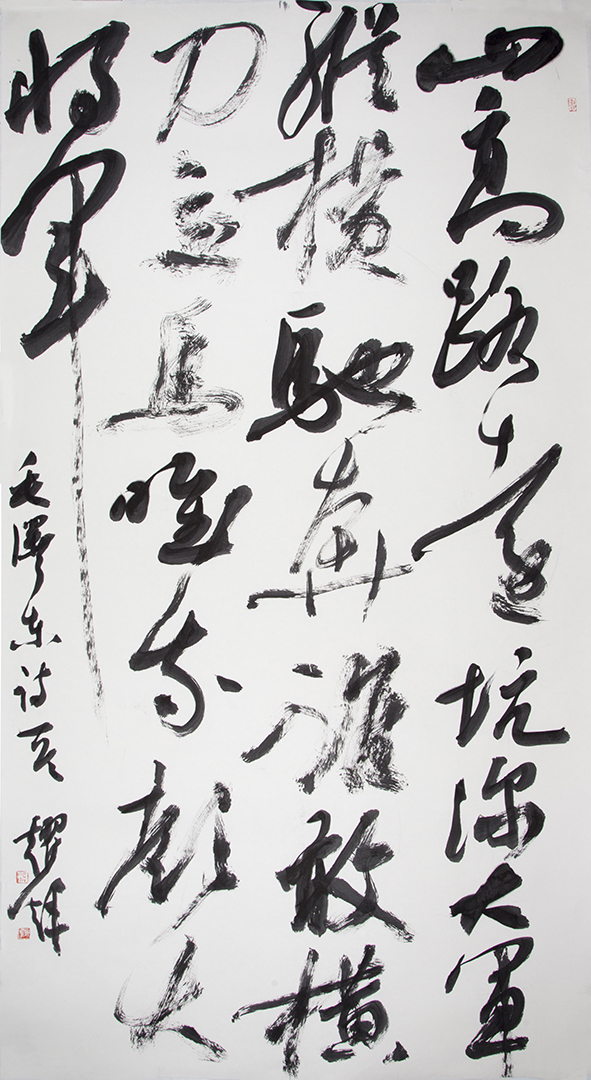 山高路遠坑深大軍
縱橫馳奔誰敢橫
刀立馬唯我彭大
將軍
毛澤东诗一首